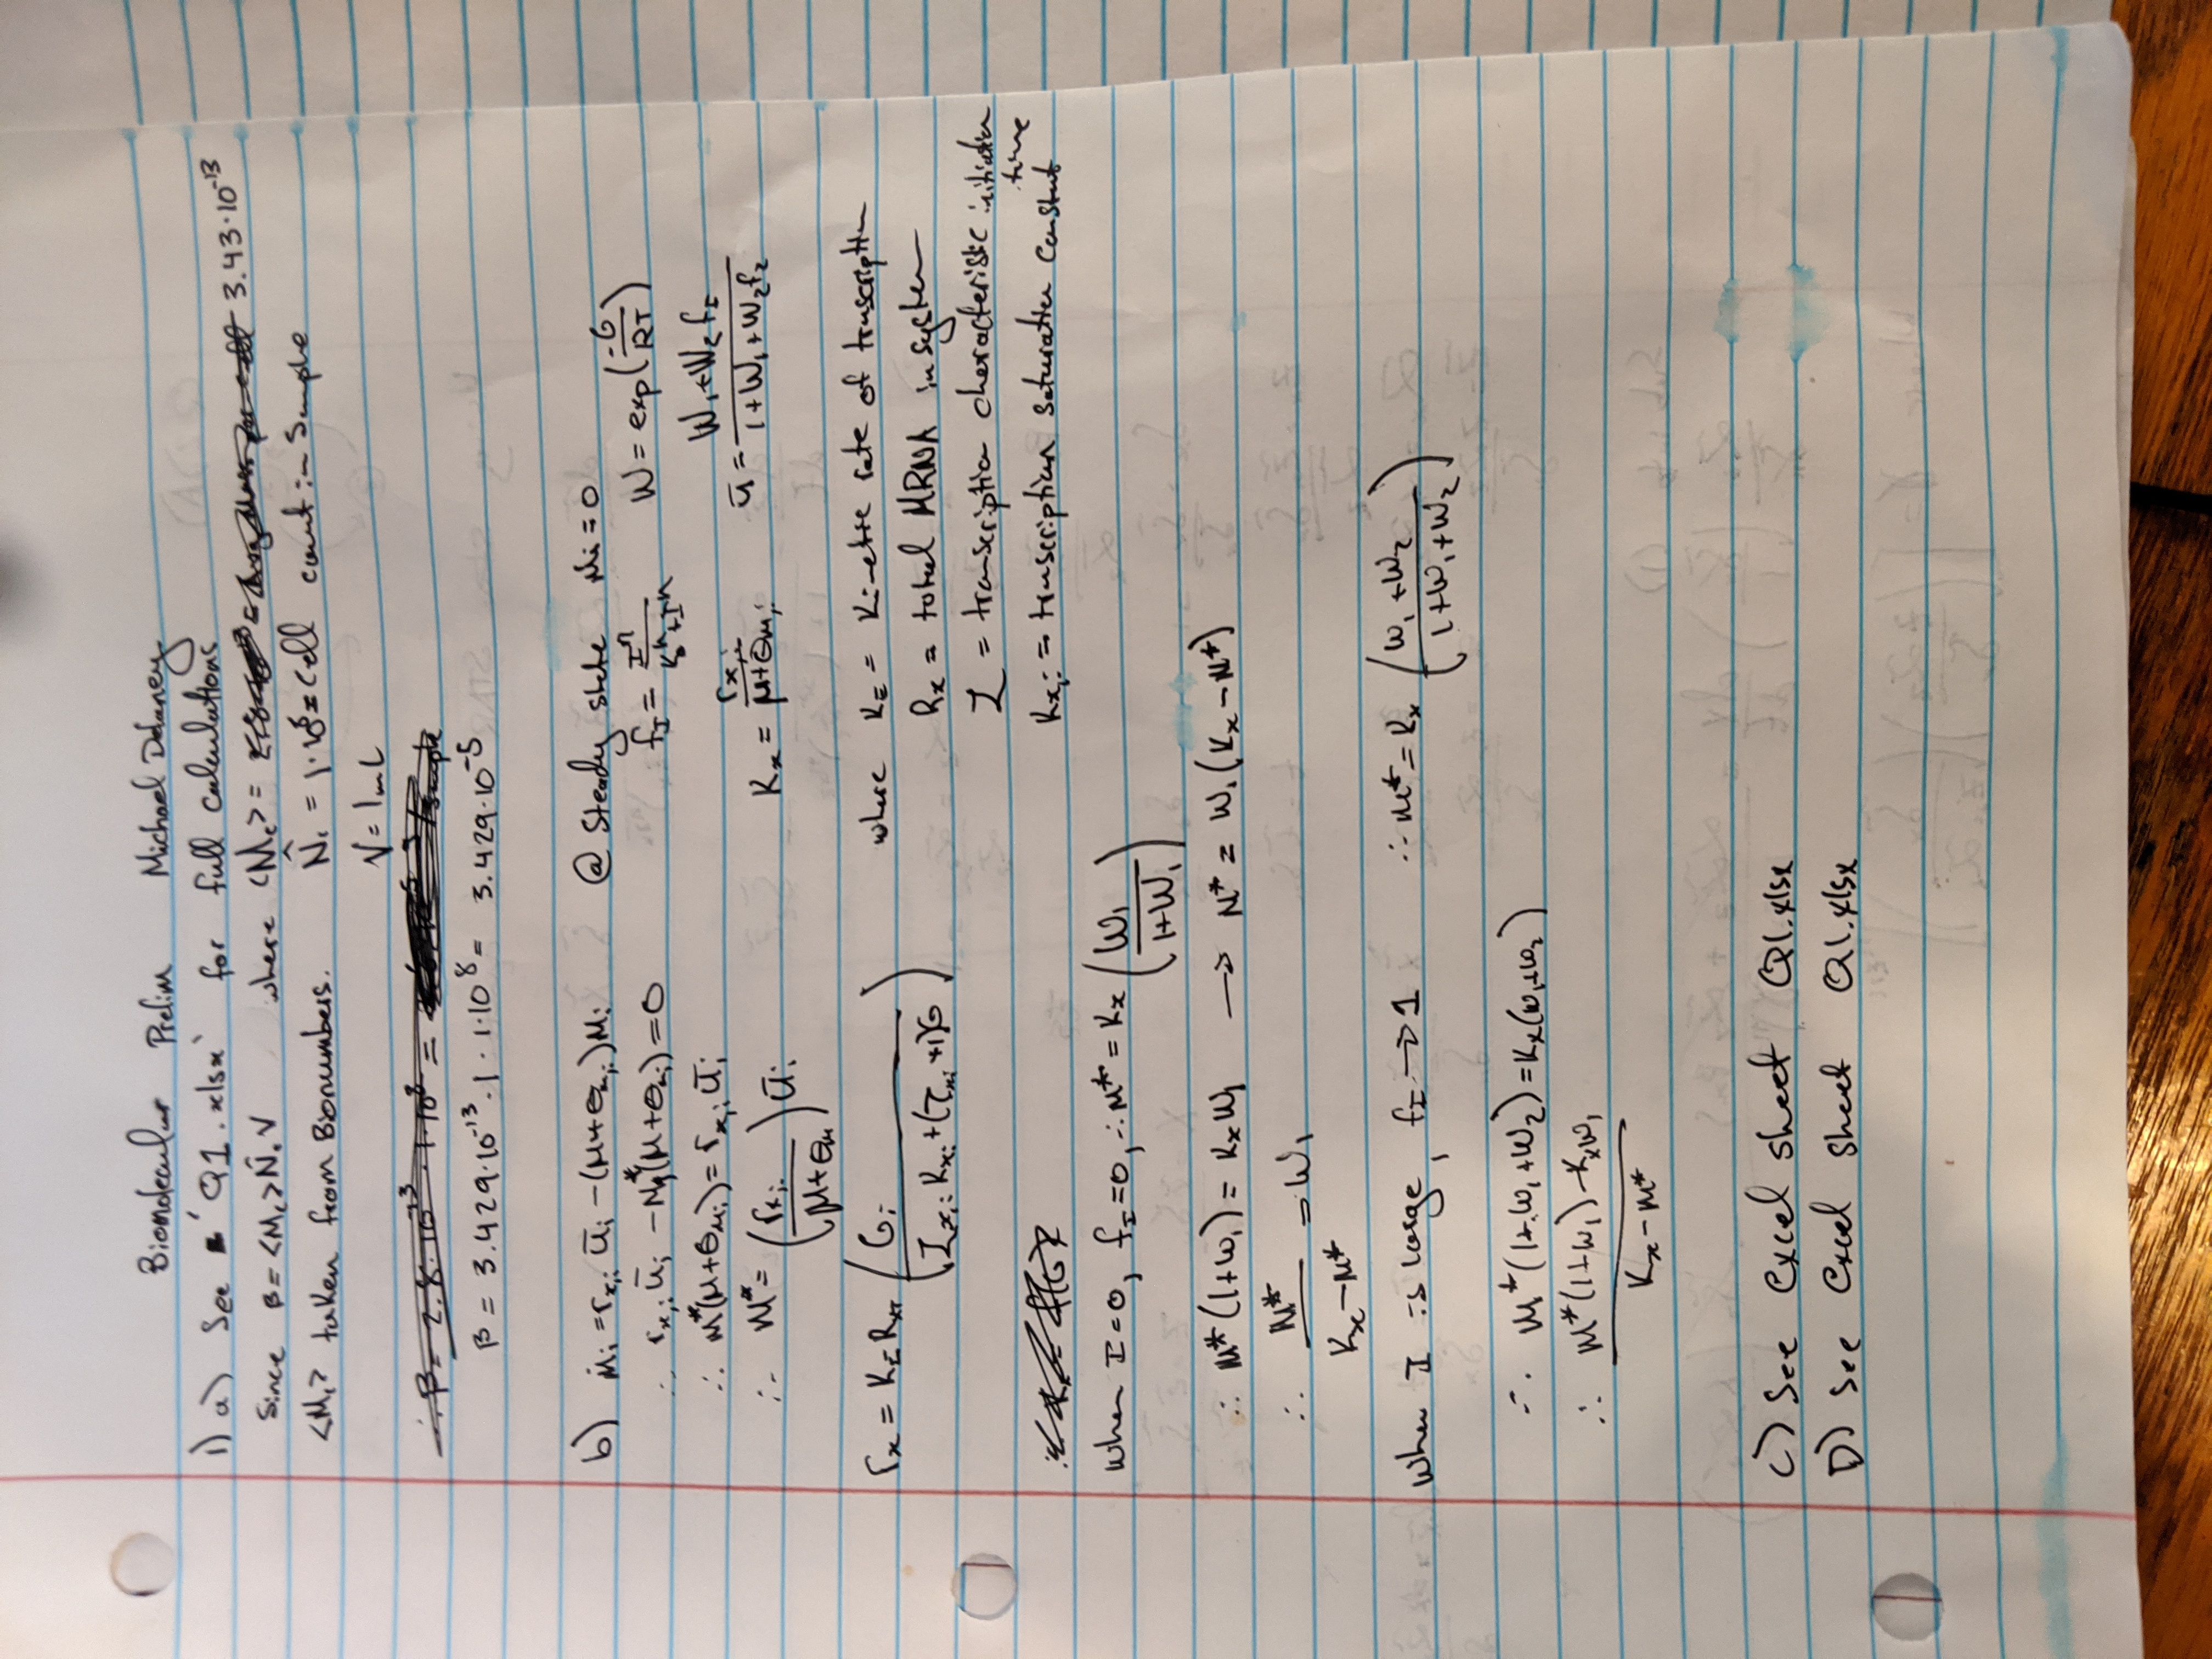 Biomolecular Prelim Michael Delaney
1) a) See 'Q1.xlsx' for full calculations
Since β = <Mc> N̂c V where <Mc> = 3.43·10⁻¹³
<Mc> taken from Bionumbers. N̂c = 1·10⁸ = Cell count in Sample
V = 1mL
β = 3.429·10⁻¹³ · 1 · 1·10⁸ = 3.429·10⁻⁵
b) ṁi = rx,i ūi − (μ+θm,i)mi @ Steady state ṁi = 0
∴ rx,i ūi − mi*(μ+θm,i) = 0 fI = Iⁿ/(kDⁿ+Iⁿ) W = exp(−G/RT)
∴ m*(μ+θm,i) = rx,i ūi
∴ m* = (rx,i/(μ+θm)) ūi Kx = rx,i/(μ+θm,i) ū = (W1+W2 fI)/(1+W1+W2 fI)
rx = KE RXT (Gi/(τx,i Kx,i + (τx,i +1)G)) where KE = Kinetic rate of transcription
Rx = total MRNA in system
τ = transcription characteristic initiation
time
Kx,i = transcription saturation constant
When I=0, fI=0, ∴ m* = Kx (W1/(1+W1))
∴ m*(1+W1) = Kx W1 → m* = W1(Kx − m*)
∴ m*/(Kx − m*) = W1
When I is large, fI → 1 ∴ m* = Kx ((W1+W2)/(1+W1+W2))
∴ m*(1+W1+W2) = Kx(W1+W2)
∴ (m*(1+W1) − KxW1)/(Kx − m*)
C) See excel sheet Q1.xlsx
D) See Excel sheet Q1.xlsx